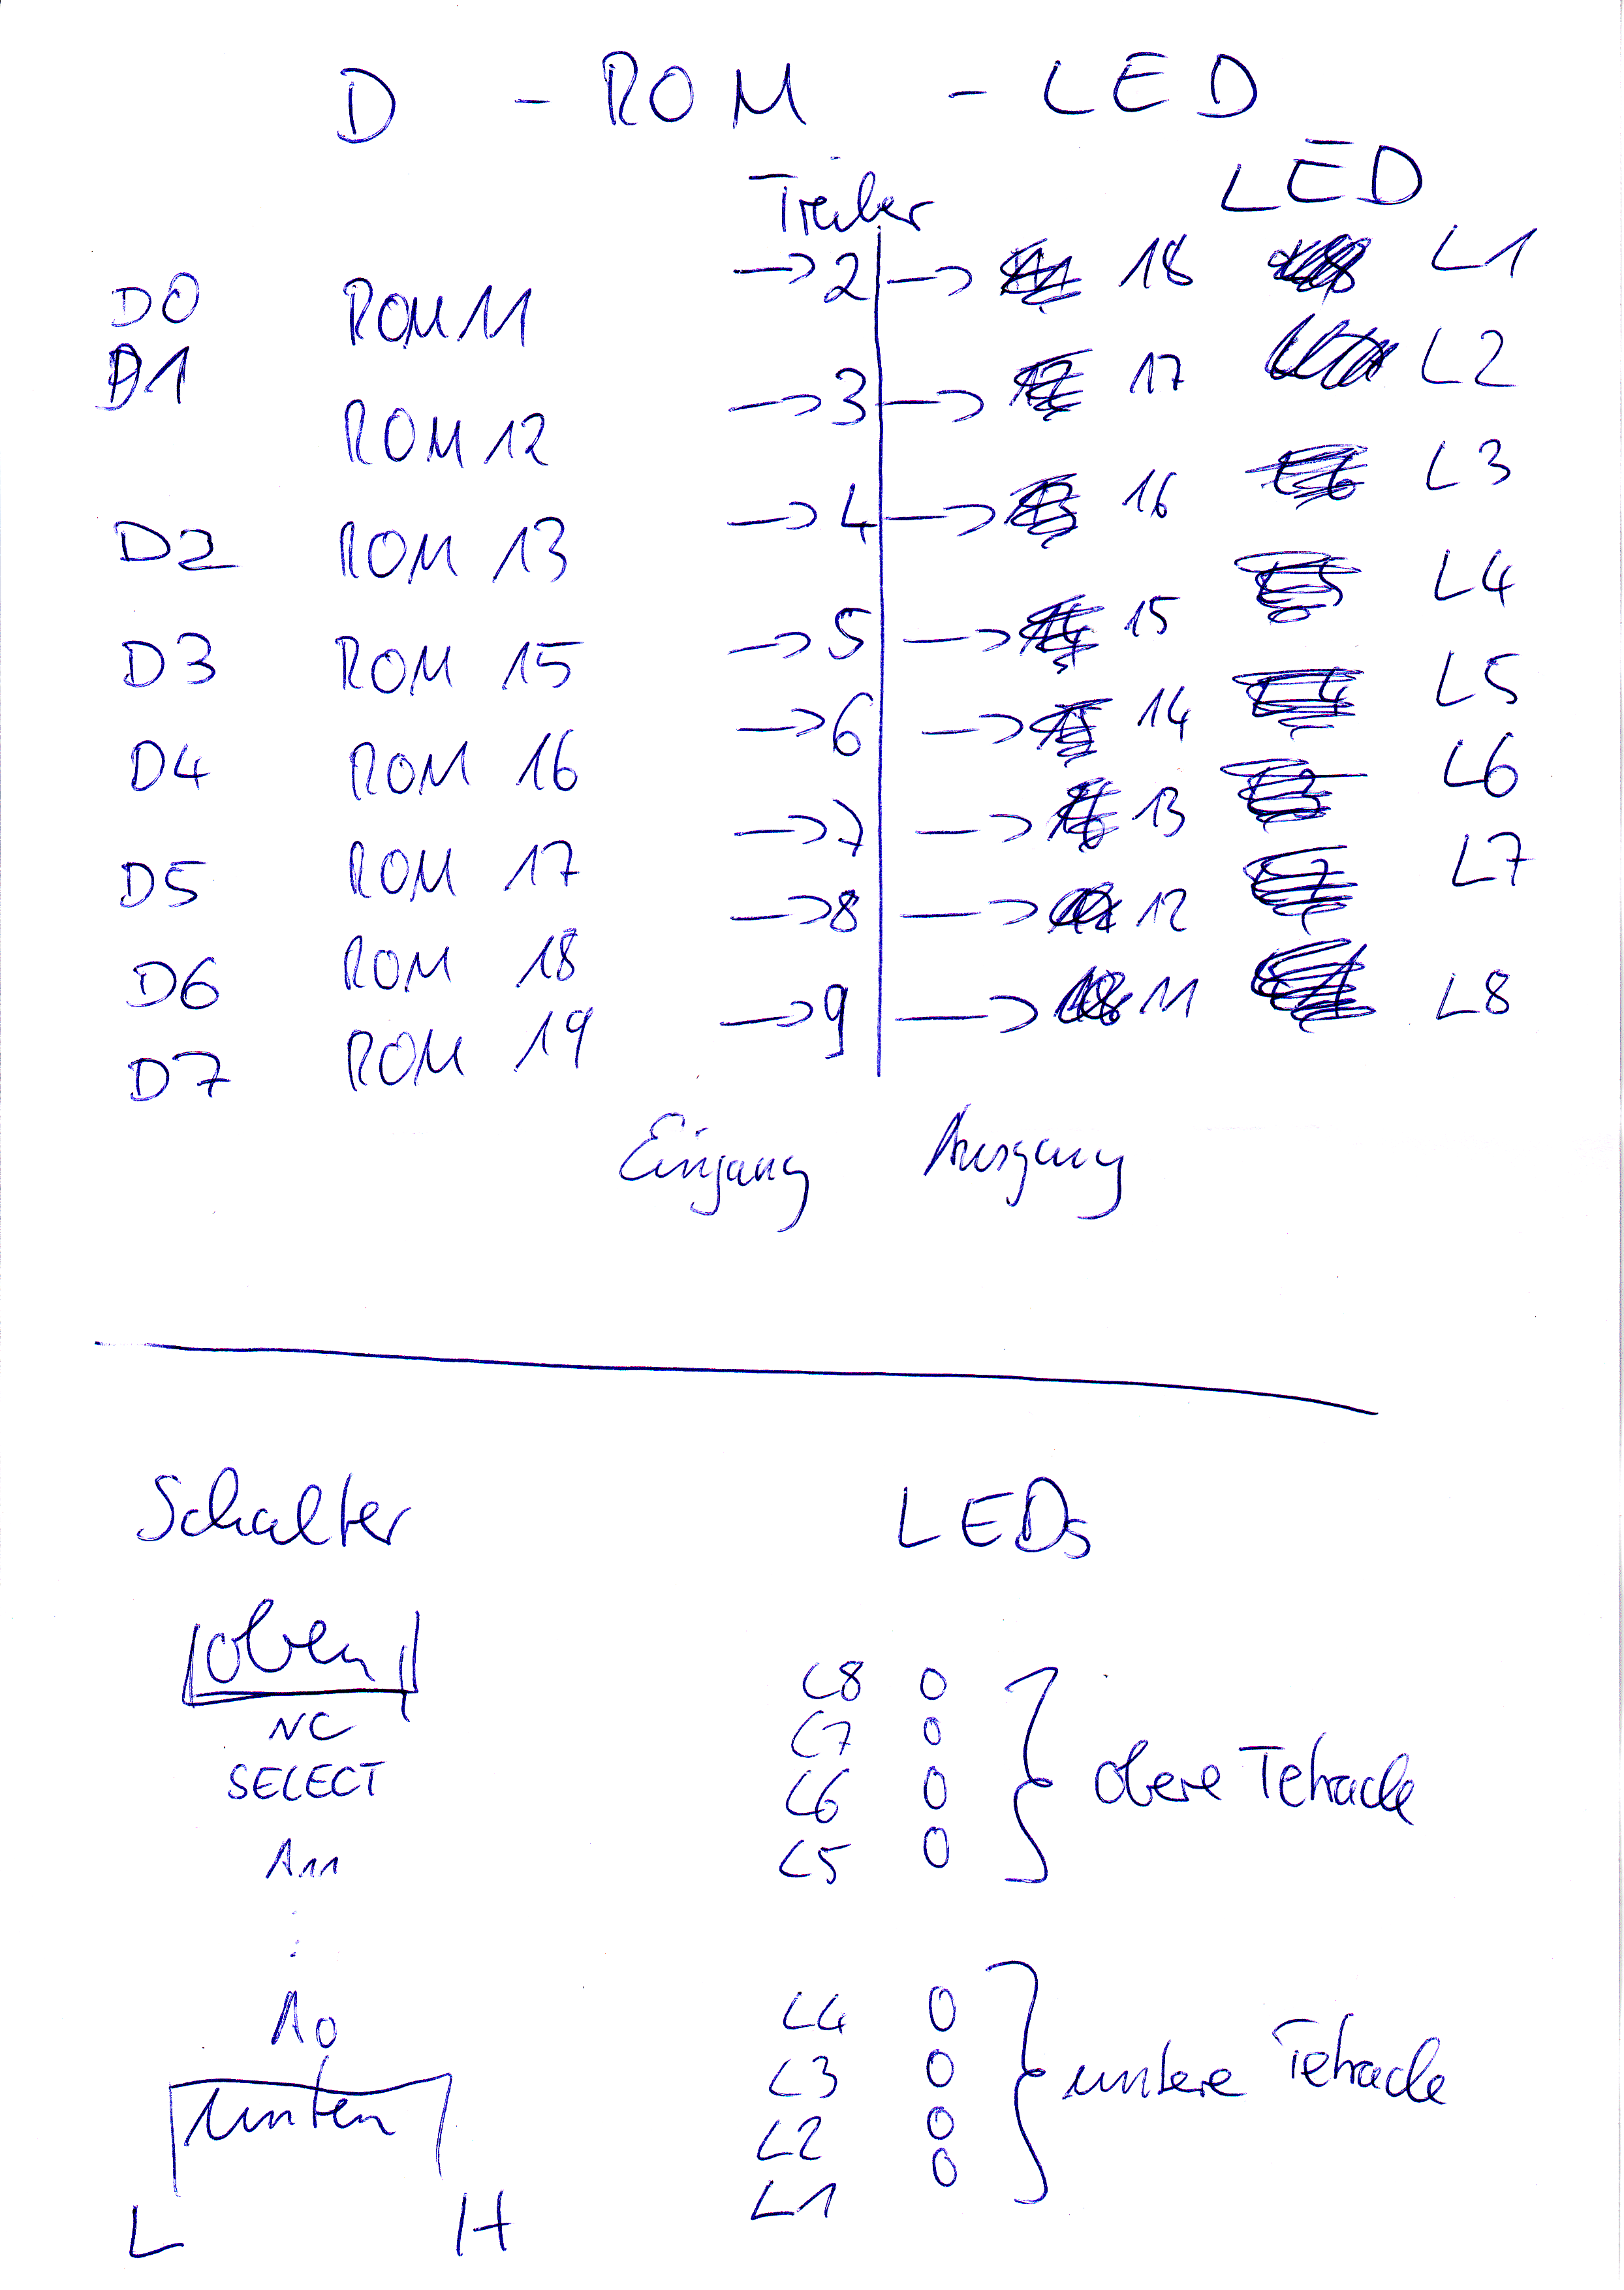 D - ROM - LED
Treiber LED
D0 ROM 11 → 2 → 18 L1
D1 ROM 12 → 3 → 17 L2
D2 ROM 13 → 4 → 16 L3
D3 ROM 15 → 5 → 15 L4
D4 ROM 16 → 6 → 14 L5
D5 ROM 17 → 7 → 13 L6
D6 ROM 18 → 8 → 12 L7
D7 ROM 19 → 9 → 11 L8
Eingang Ausgang
Schalter LEDs
oben
NC
SELECT
A11
:
A0
unten
L H
L8 O
L7 O
L6 O
L5 O
obere Tetrade
L4 O
L3 O
L2 O
L1 O
untere Tetrade